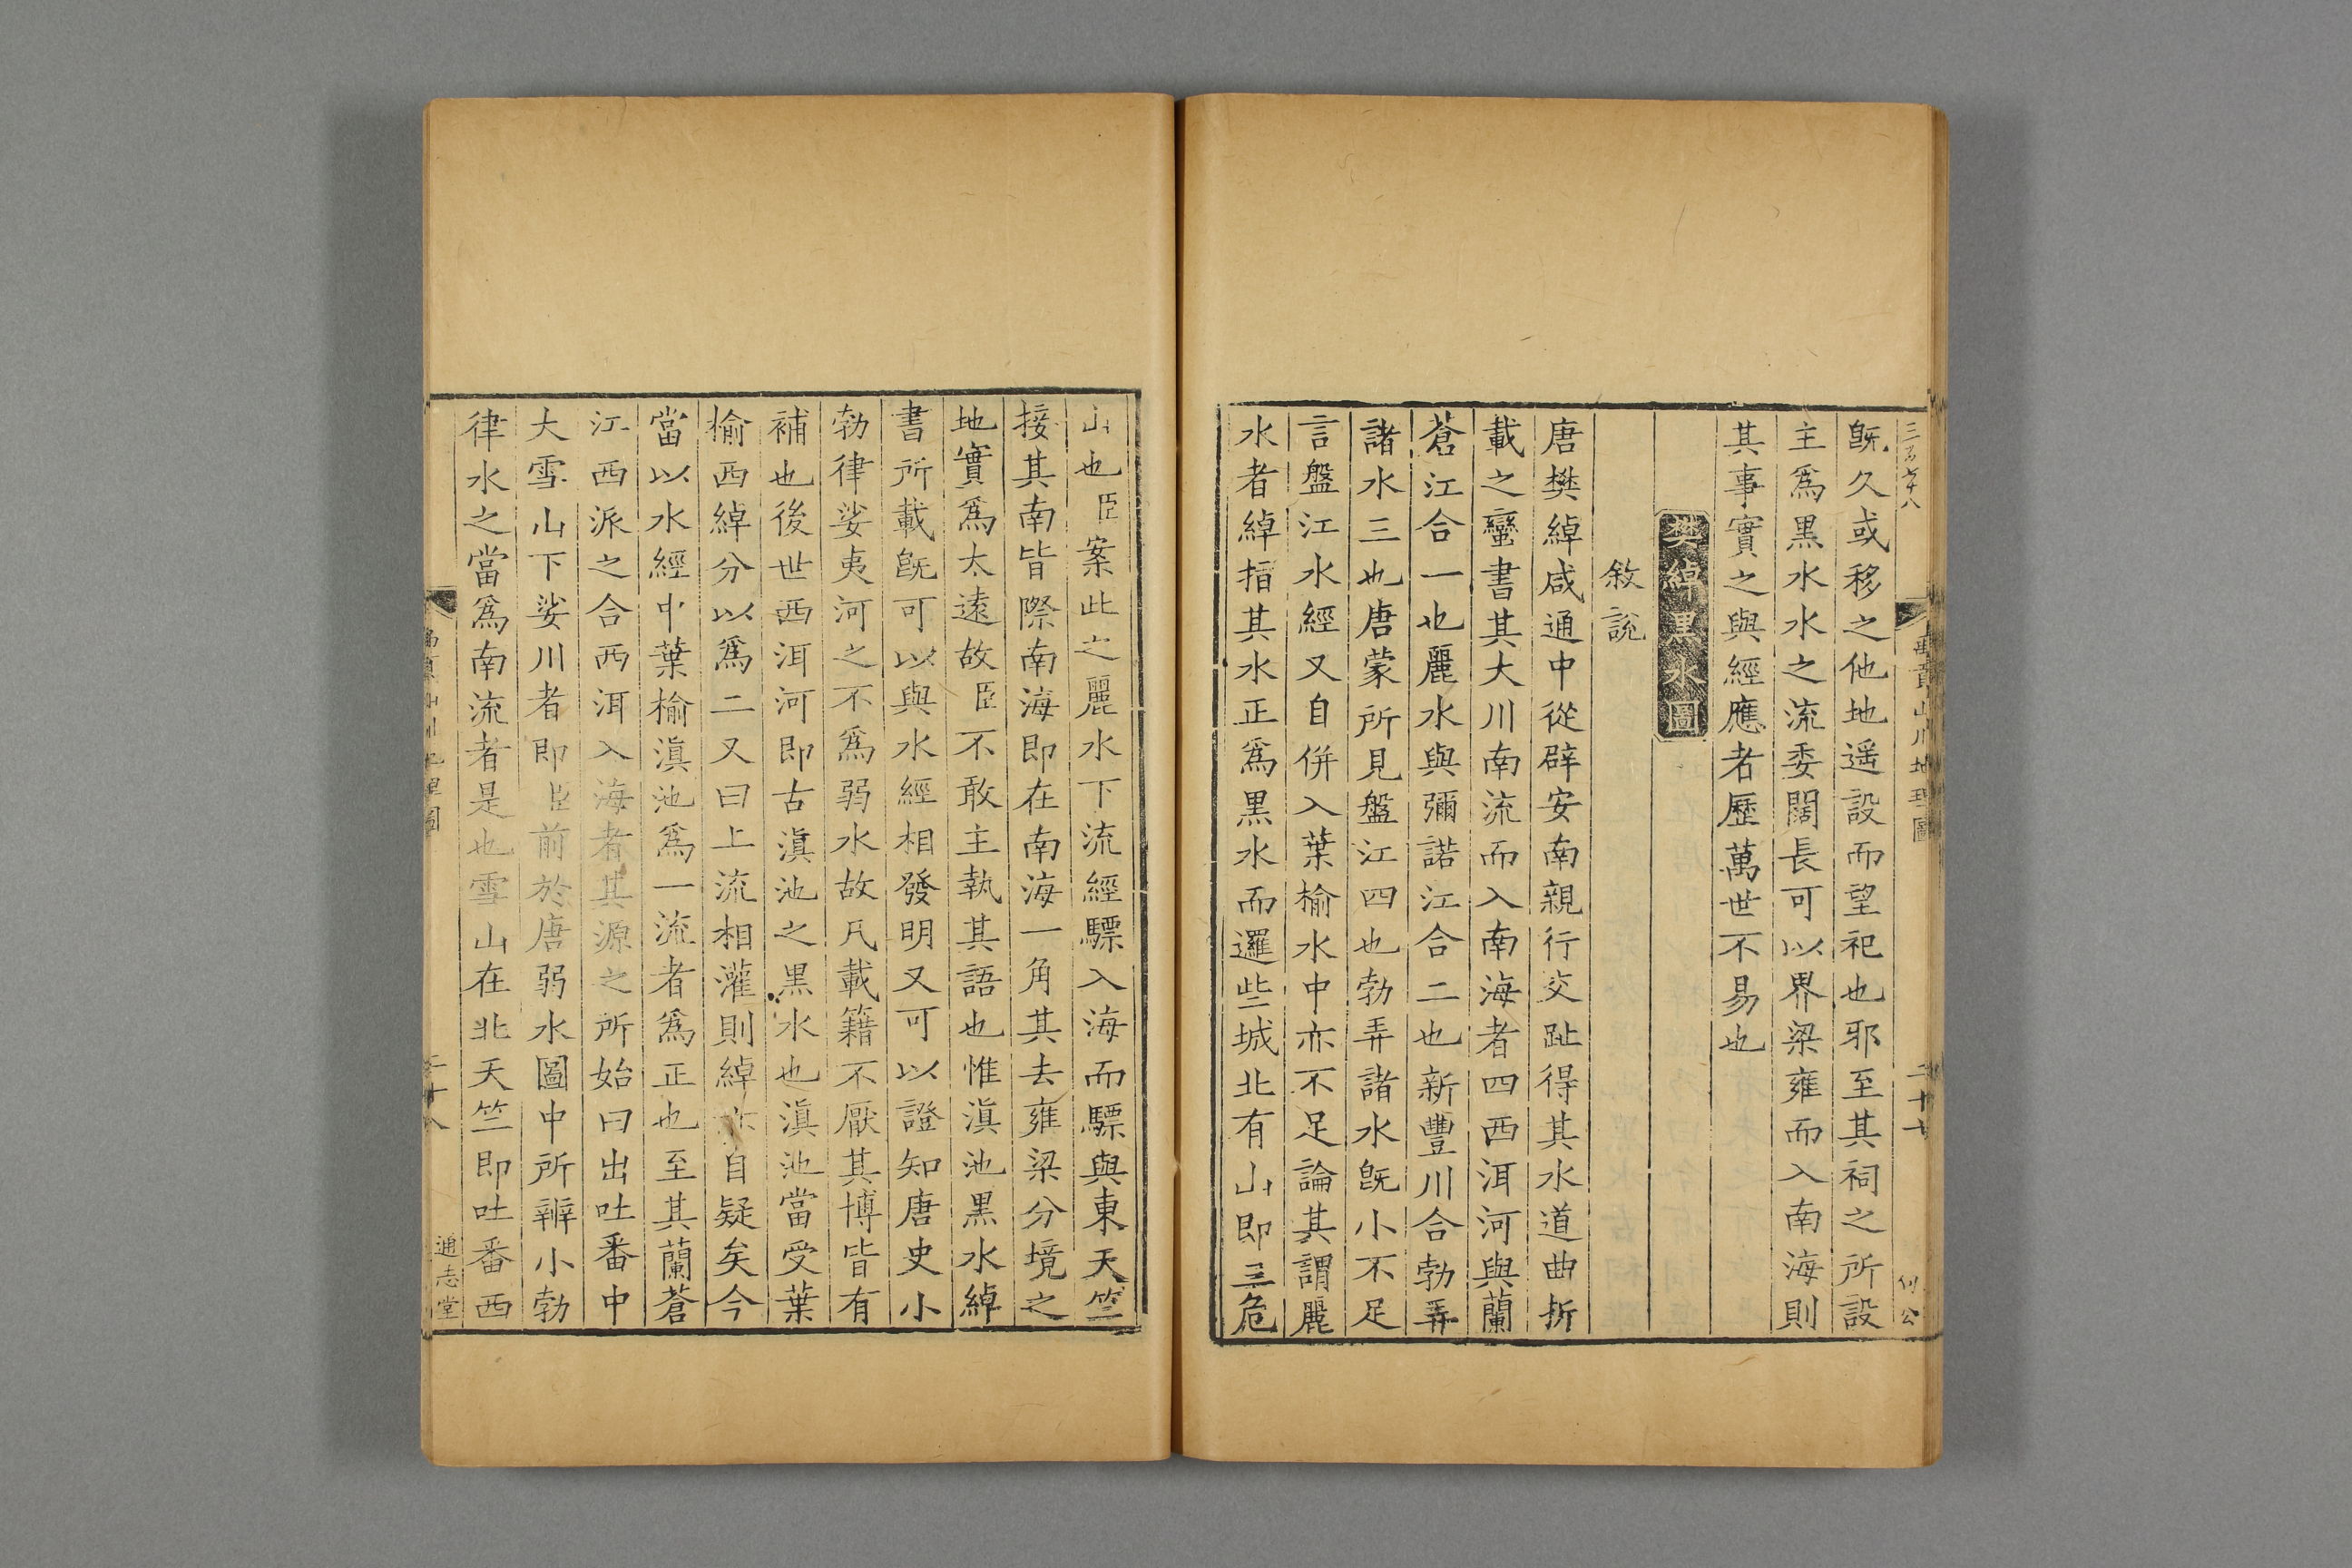 禹貢山川地理圖
二十七
既久或移之他地遥設而望祀也邪至其祠之所設
主爲黒水水之流委闊長可以界梁雍而入南海則
其事實之與經應者歷萬世不易也
樊綽黒水圖
敘說
唐樊綽咸通中從辟安南親行交趾得其水道曲折
載之蠻書其大川南流而入南海者四西洱河與蘭
蒼江合一也麗水與彌諾江合二也新豐川合勃弄
諸水三也唐蒙所見盤江四也勃弄諸水既小不足
言盤江水經又自併入葉榆水中亦不足論其謂麗
水者綽指其水正爲黒水而邏些城北有山即三危
山也臣案此之麗水下流經驃入海而驃與東天竺
接其南皆際南海即在南海一角其去雍梁分境之
地實爲太遠故臣不敢主執其語也惟滇池黒水綽
書所載既可以與水經相發明又可以證知唐史小
勃律娑夷河之不爲弱水故凡載籍不厭其博皆有
補也後世西洱河即古滇池之黒水也滇池當受葉
榆西綽分以爲二又曰上流相灌則綽自疑矣今
當以水經中葉榆滇池爲一流者爲正也至其蘭蒼
江西派之合西洱入海者其源之所始曰出吐番中
大雪山下娑川者即臣前於唐弱水圖中所辨小勃
律水之當爲南流者是也雪山在北天竺即吐番西
二十八
通志堂